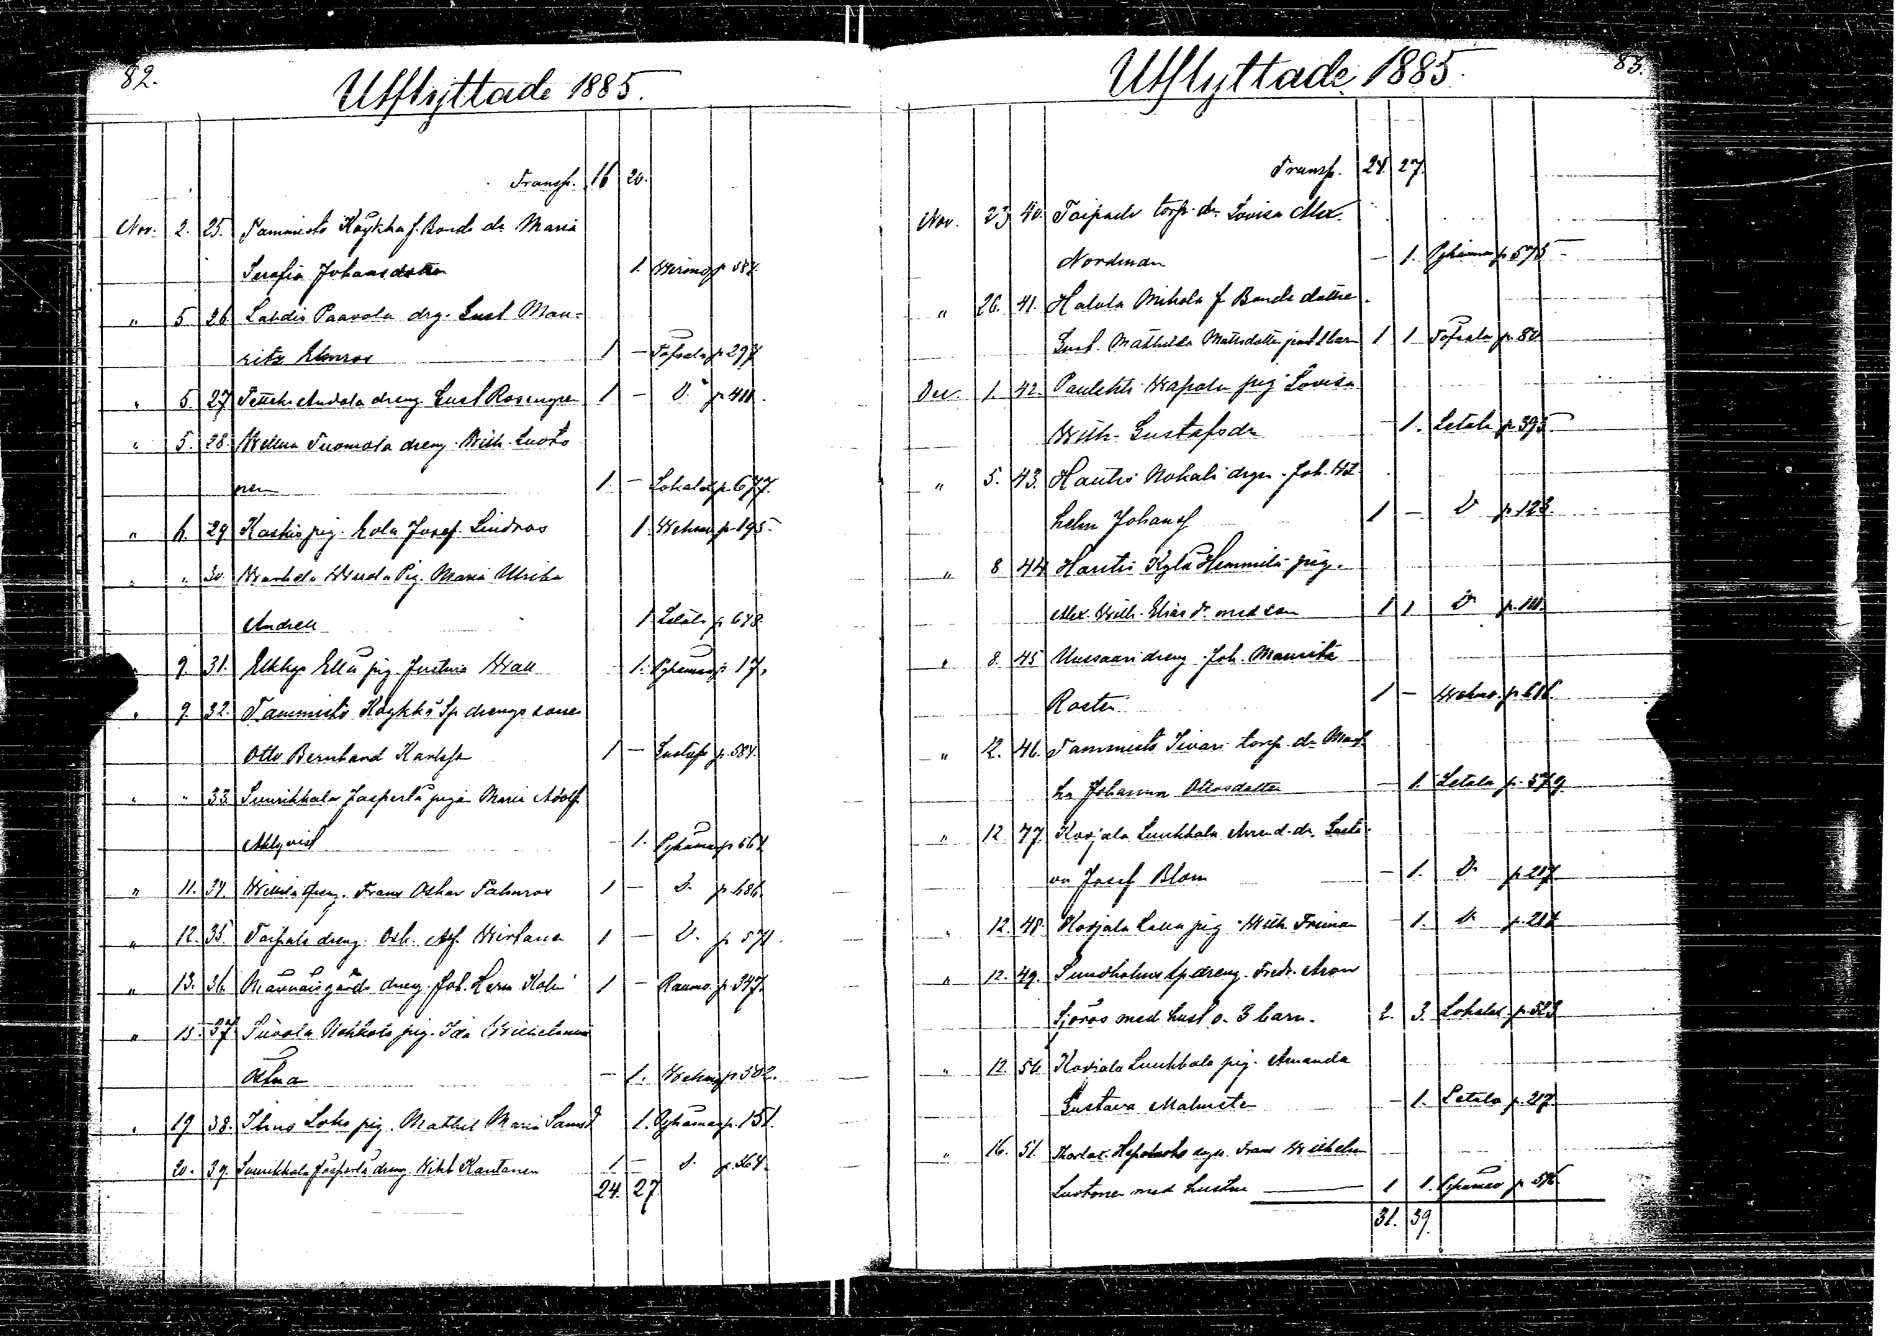 82.
Utflyttade 1885.
Transp. 16 20.
Nov. 2. 25. Tammisto Köykkä f. Bonde dr Maria
Serafia Johansdotter 1. Wirmo p 584
" 5. 26 Lahdis Paavola drg. Gust Mau-
ritz Elmros 1 — Töfsala p 297
" 5. 27 Antola dreng Gust Rosengre 1 — D. p 411.
" 5. 28. Wellua Tuomola dreng Wilh. Luoto
nen 1. — Lokalax p 677.
" 6. 29 Kaskis pig. Eola Josef. Lindros 1. Wehmo p 195
" " 30. Warhela pig. Maria Ulrika
Andrell 1 Letala p 648
" 9. 31. Elkkyn Ellä pig Justina Wall 1. Pyhämaa p 17.
" 9. 32. Tammisto Köykkä Sp drengs sonen
Otto Bernhard Karlsson 1 — Gustafs p. 584.
" " 33. Suurikkala Jasperlä pigan Maria Adolf.
Ahlqvist 1. Pyhämaa p 564
" 11. 34. Willilä dreng. Frans Oskar Palmros 1 — D. p 686.
" 12. 35. Taipale dreng Osk. Alf. Wirtanen 1 — D. p 571.
" 13. 36. dreng. Joh. Herm Koli 1 — Raumo p. 347.
" 15. 37 Suvola Nokkala pig. Ida Wilhelmina
— 1. Wehmo p 502.
" 19 38. Ihnis Loho pig. Mathil Maria Samsd 1. Pyhämaa p. 151.
20. 39. Suurikkala Jasperlä dreng Vikt Kantanen 1 — D. p 564.
24. 27

83.
Utflyttade 1885.
Transp. 24. 27.
Nov. 23 40. Taipale torp. dr. Lovisa Alex.
Nordman — 1. Pyhämaa p 575
" 26. 41. Hallu Mikola f Bonde dotter
Gust. Mathilda Mattsdotter jemte barn 1 1 Töfsala p. 80
Dec. 1. 42. Wapola pig Lovisa
Wilh. Gustafsdr 1. Letala p 395
" 5. 43. Hautis Nokali drgn. Joh. Wil
helm Johanss 1 — D p 123.
" 8 44 Hautis Kylä Hemmilä pig.
Alex. Wilh. Eliasdr med son 1 1 D p. 111.
" 8. 45 Uussaari dreng. Joh. Mauritz
Roster 1 — Wehmo. p. 616
" 12. 46. Tammisto Sivari torp. dr Mat
hr Johanna Ottosdotter — 1. Letala p. 579
" 12 47. Korjala Luukkala Arend. dr. Gusta
va Josef Blom — 1. D. p 217
" 12. 48. Korjala Lalla pig Wilh. Friman — 1. D. p. 214
" 12. 49. Sundholms Sp dreng. Fredr. Aron
Sjöros med hust o. 3 barn. 2. 3. Lokalax p. 523
" 12. 50. Korjala Luukkala pig. Amanda
Gustava Malmsten — 1. Letala p. 217
" 16. 51. Frans Wilhelm
Luotonen med hustru 1 1. Pyhämaa p 576.
31. 39.